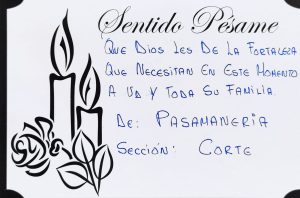 Sentido Pésame
QUE DIOS LES DE LA FORTALEZA
QUE NECESITAN EN ESTE MOMENTO
A UD Y TODA SU FAMILIA.
DE: PASAMANERIA
SECCIÓN: CORTE